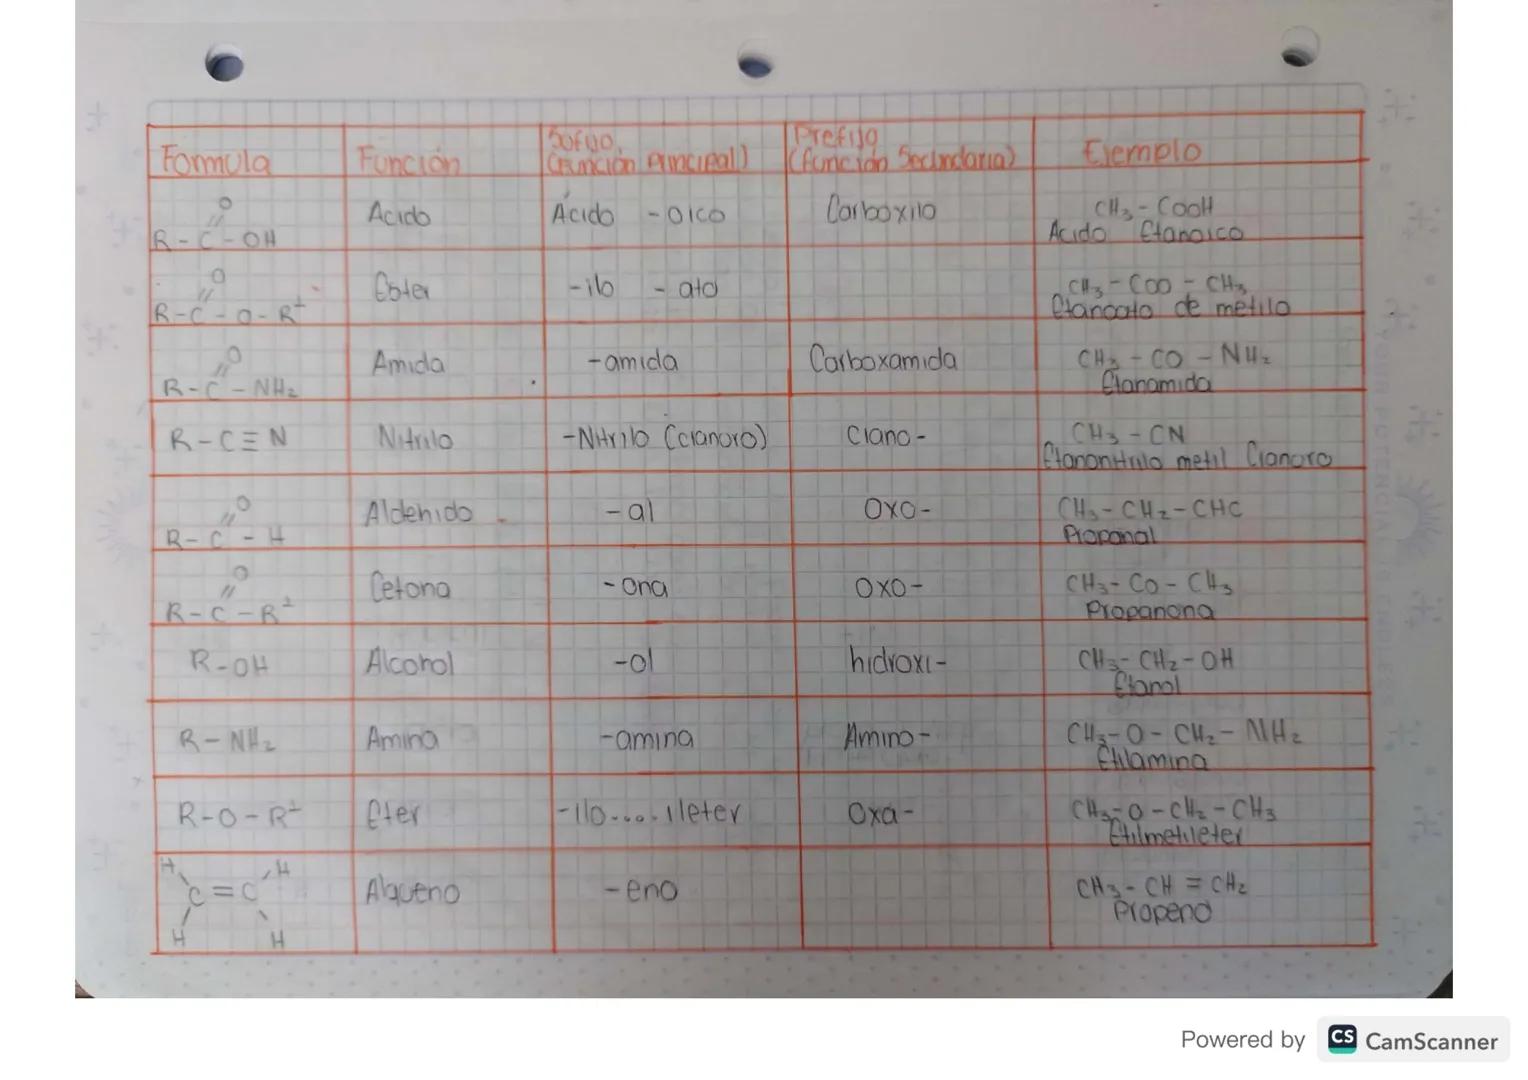 Formula Función Sufijo (Función principal) Prefijo (función Secundaria) Ejemplo
O
R-C-OH Acido Ácido -oico Carboxilo CH₃-COOH
Acido Etanoico
O
R-C-O-R¹ Ester -ilo -ato CH₃-COO-CH₃
Etanoato de metilo
O
R-C-NH₂ Amida -amida Carboxamida CH₃-CO-NH₂
Etanamida
R-C≡N Nitrilo -Nitrilo (cianuro) Ciano- CH₃-CN
Etanonitrilo metil Cianuro
O
R-C-H Aldehido -al oxo- CH₃-CH₂-CHC
Propanal
O
R-C-R² Cetona -ona oxo- CH₃-Co-CH₃
Propanona
R-OH Alcohol -ol hidroxi- CH₃-CH₂-OH
Etanol
R-NH₂ Amina -amina Amino- CH₃-O-CH₂-NH₂
Etilamina
R-O-R¹ Eter -ilo.....ileter Oxa- CH₃-O-CH₂-CH₃
Etilmetileter
H H
C=C Alqueno -eno CH₃-CH=CH₂
H H Propeno
Powered by CS CamScanner